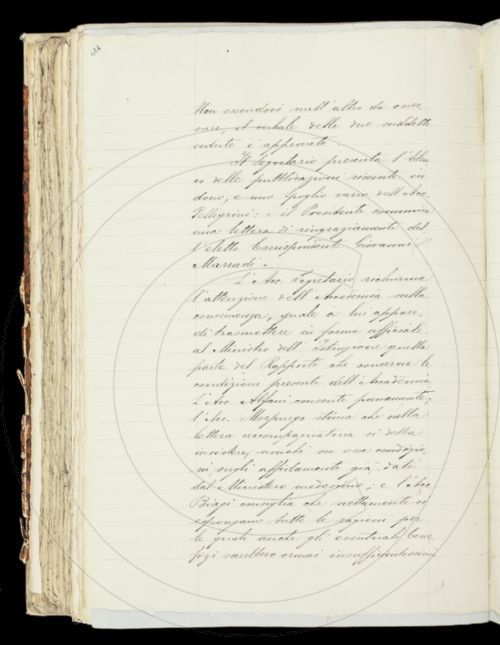 Non essendoci null'altro da osser
vare, il verbale delle due suddette
sedute è approvato.
Il Segretario presenta l'Elen
co delle pubblicazioni ricevute in
dono, e uno Spoglio vario dell'Acc.
Pellegrini: e il Presidente comunica
una lettera di ringraziamento del
Neletto Corrispondente Giovanni
Marradi.
L'Acc. Segretario richiama
l'attenzione dell'Accademia sulla
convenienza, quale a lui appare,
di trasmettere in forma ufficiale
al Ministro dell'Istruzione quella
parte del Rapporto che concerne le
condizioni presenti dell'Accademia
L'Acc. Alfani consente pienamente;
l'Acc. Morpurgo stima che nella
lettera accompagnatoria si debba
insistere, anche in
sui negli affidamenti già dati
dal Ministero medesimo; e l'Acc
Biagi consiglia che nettamente si
espongano tutte le ragioni per
le quali anche gli eventuali bene
fizi sarebbero ormai insufficientissimi